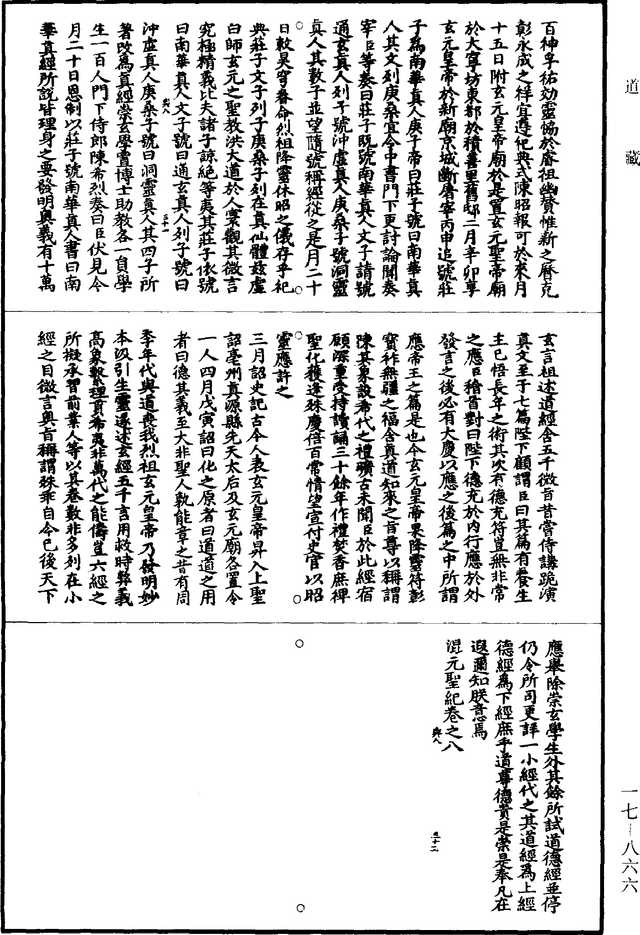 道藏
百神孚祐効靈恊於睿祖幽贊惟新之曆克
彰永成之祥宜遵祀典式陳昭報可於來月
十五日附玄元皇帝廟於是置玄元聖帝廟
於大寧坊東都於積善里舊邸二月辛卯享
玄元皇帝於新廟京城斷屠宰丙申追號莊
子爲南華真人庚子帝曰莊子號曰南華真
人其文列庚桑宜令中書門下更討論聞奏
宰臣等奏曰莊子旣號南華真人文子請號
通玄真人列子號沖虛真人庚桑子號洞靈
真人其數子並望隨號稱經從之是月二十
日敕昊穹眷命烈祖降靈休昭之儀存乎祀
典莊子文子列子庚桑子列在真仙體玆虛
白師玄元之聖教洪大道於人寰觀其微言
究極精義比夫諸子諒絕等夷其莊子依號
曰南華真人文子號曰通玄真人列子號曰
沖虛真人庚桑子號曰洞靈真人其四子所
著改爲真經崇玄學置博士助教各一員學
生一百人門下侍郎陳希烈奏曰臣伏見今
月二十日恩制以莊子號南華真人書曰南
華真經所說皆理身之要發明奧義有十萬
玄言祖述道經含五千微旨昔嘗侍講跪演
真文至于七篇陛下顧謂臣曰其篇有養生
主已悟長年之術其次有德充符豈無非常
之應臣稽首對曰陛下德充於內行應於外
發言之後必有大慶以應之後篇之中所謂
應帝王之篇是也今玄元皇帝果降靈符彰
寳祚無疆之福含真道知來之旨尊以稱謂
陳其象設希代之禮曠古未聞臣於此經宿
願深重受持讀誦三十餘年作禮焚香庶裨
聖化獲逢殊慶倍百常情望宣付史官以昭
靈應許之
三月詔史記古今人表玄元皇帝昇入上聖
詔亳州真源縣先天太后及玄元廟各置令
一人四月戊寅詔曰化之原者曰道道之用
者曰德其義至大非聖人孰能章之昔有周
季年代與道喪我烈祖玄元皇帝乃發明妙
本汲引生靈遂述玄經五千言用救時弊義
高象繫理貫希夷非萬代之能儔豈六經之
所擬承習前業人等以其卷數非多列在小
經之目微言奧旨稱謂殊乖自今已後天下
應舉除崇玄學生外其餘所試道德經並停
仍令所司更詳一小經代之其道經爲上經
德經爲下經庶乎道尊德貴是崇是奉凡在
遐邇知朕意焉
混元聖紀卷之八
一七—八六六